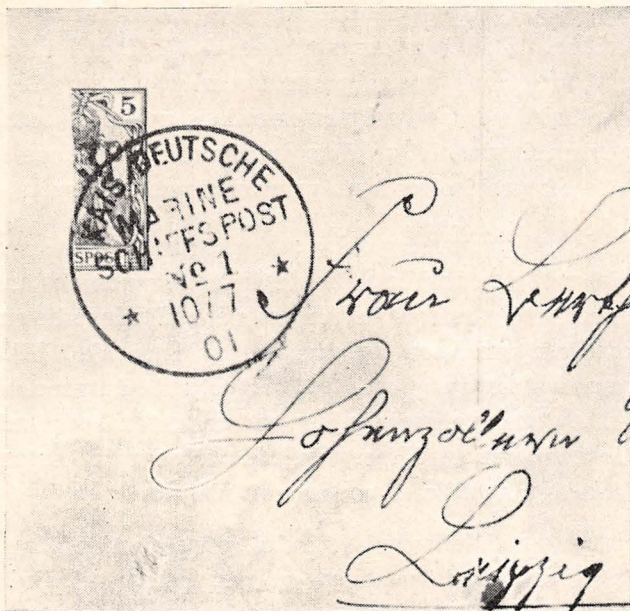 5
KAIS. DEUTSCHE
MARINE
SCHIFFSPOST
No 1
10/7
01
Frau
Hohenzollern
Leipzig